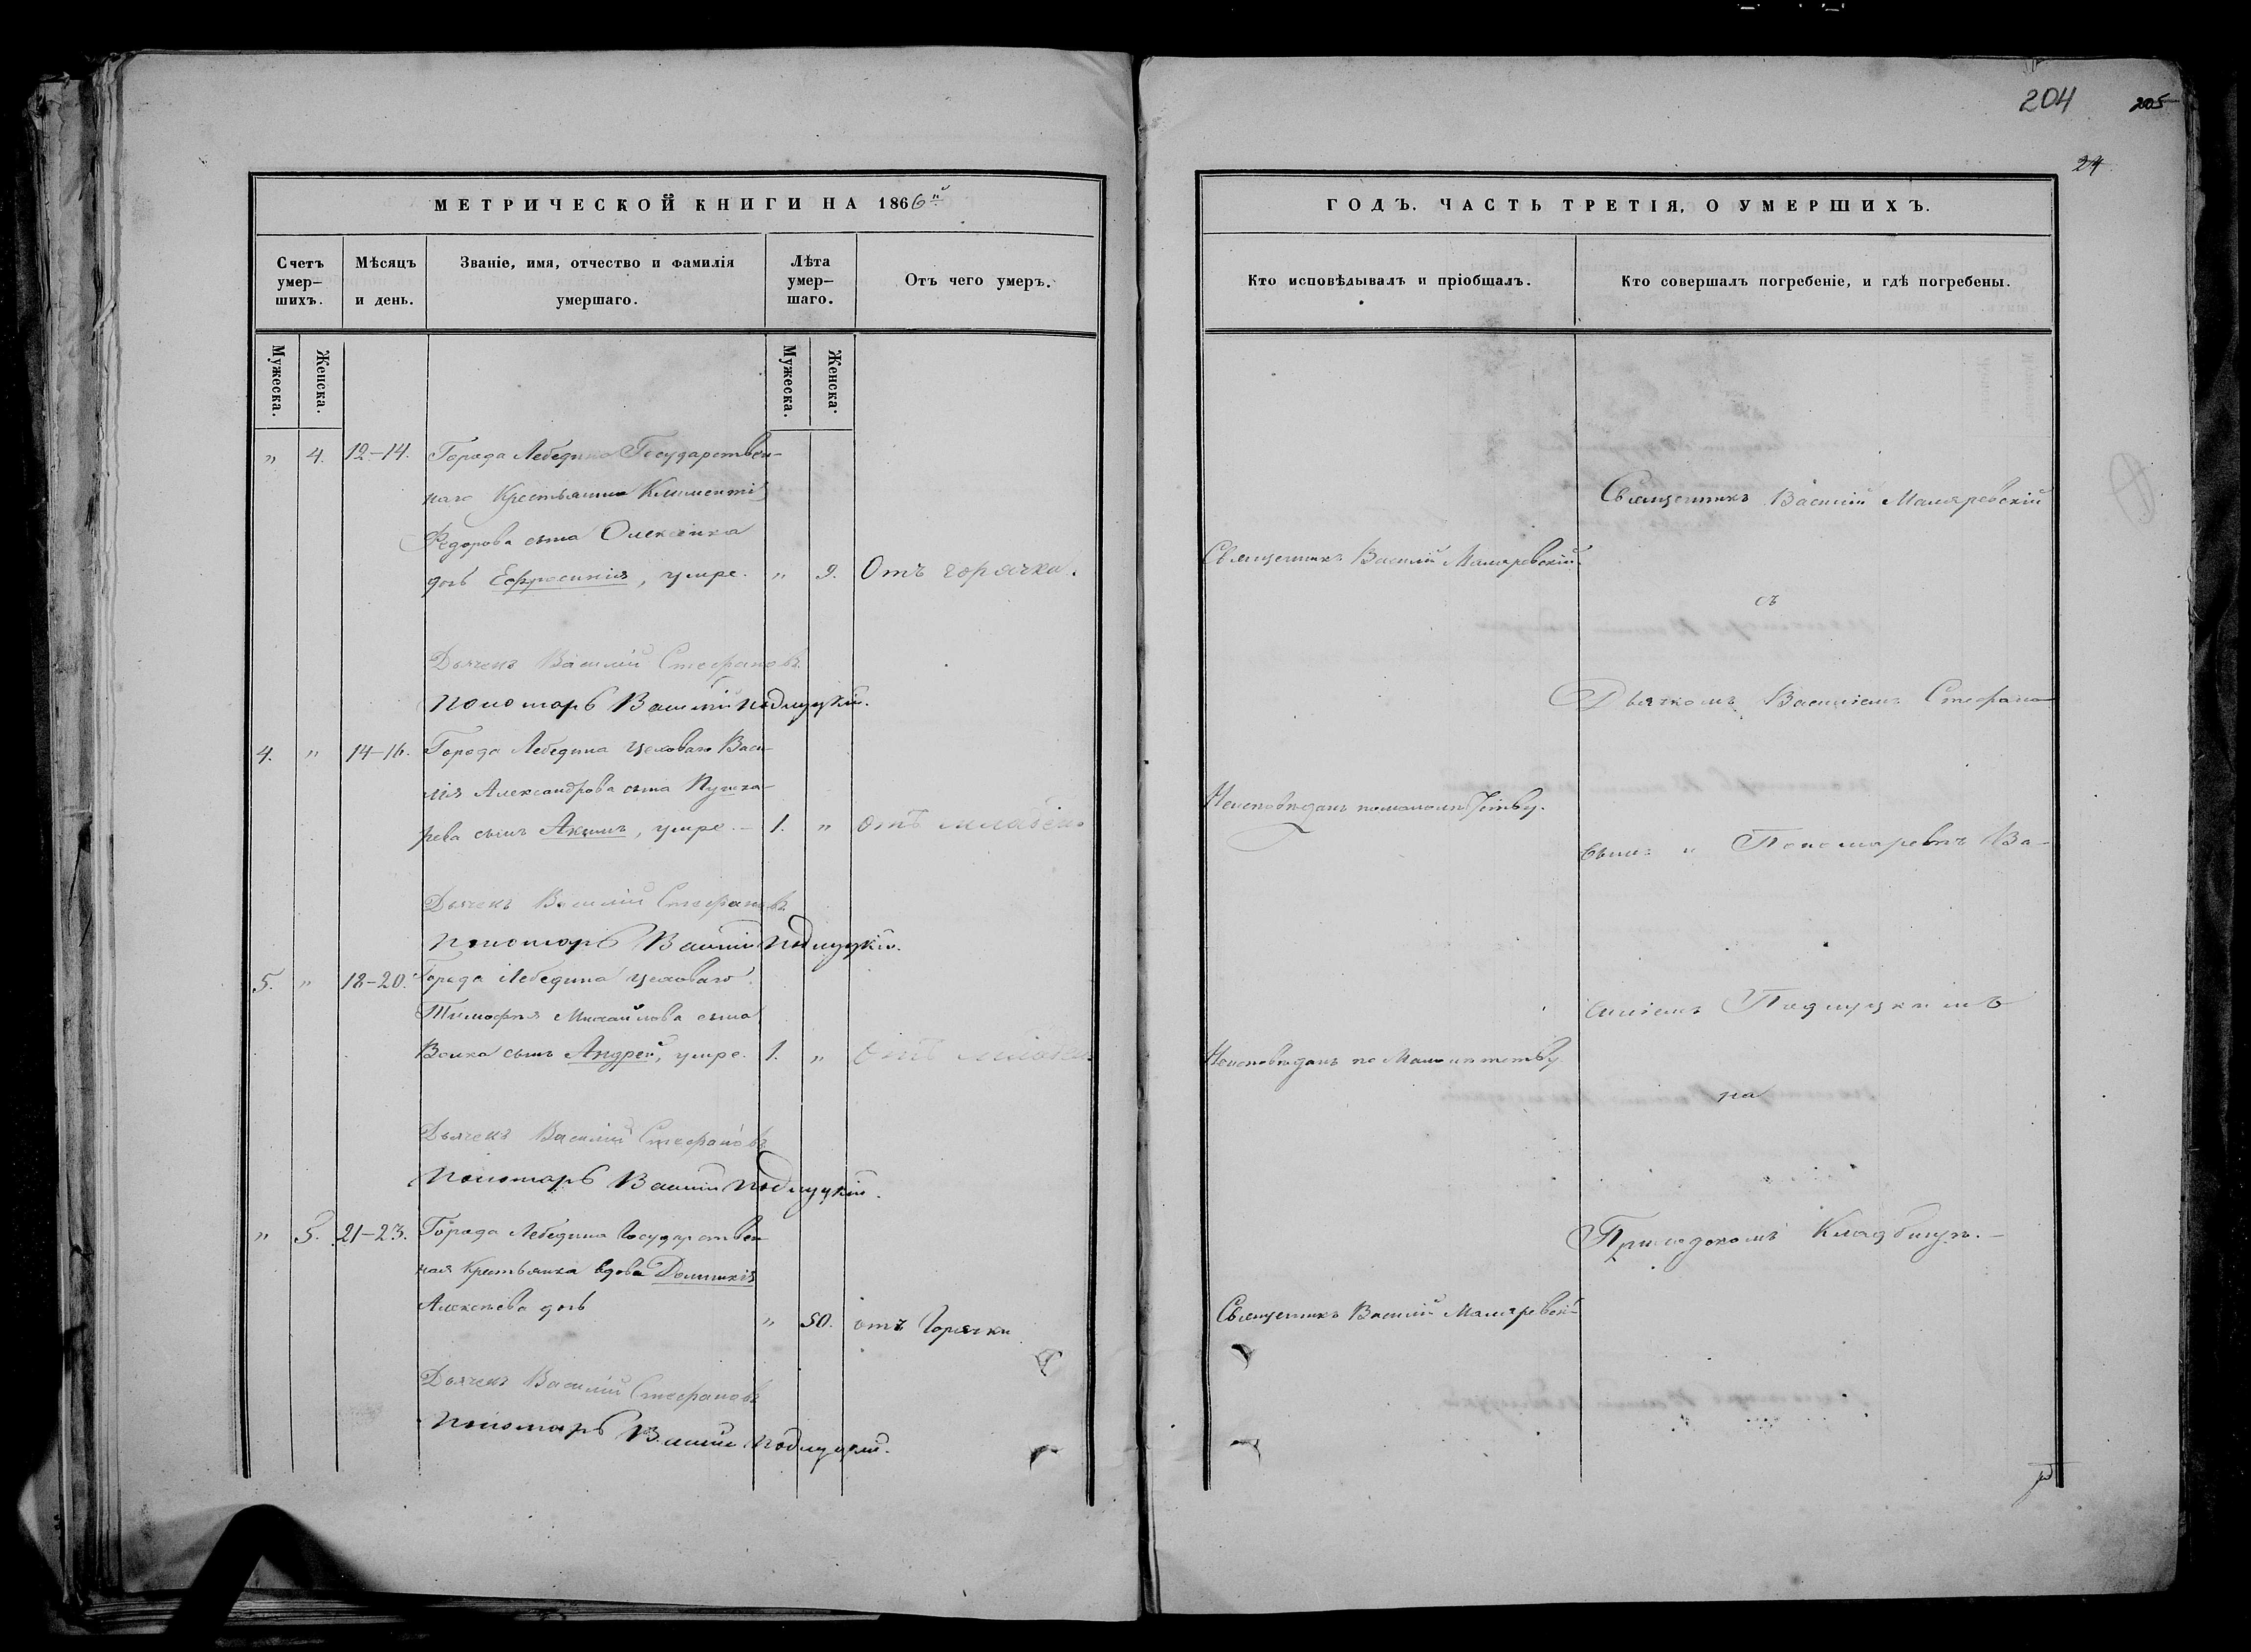 МЕТРИЧЕСКОЙ КНИГИ НА 1866й
Счетъ умер-шихъ.
Мѣсяцъ и день.
Званіе, имя, отчество и фамилія умершаго.
Лѣта умер-шаго.
Отъ чего умеръ.
Мужеска.
Женска.
Мужеска.
Женска.
" 4. 12-14. Города Лебедина Государствен-
наго Крестьянина Климентія
Федорова сына Олексенка
дочь Ефросинія, умре. " 9. Отъ горячки.
Дьячекъ Василій Стефановъ
Пономарь Василій Подлуцкій.
4. " 14-16. Города Лебедина цеховаго Васи-
лія Александрова сына Пушка-
рева сынъ Акимъ, умре. - 1. " отъ
Дьячекъ Василій Стефановъ
Пономарь Василій Подлуцкій.
5. " 18-20. Города Лебедина цеховаго
Тимофея Михайлова сына
Волка сынъ Андрей, умре. 1. " отъ
Дьячекъ Василій Стефановъ
Пономарь Василій Подлуцкій.
" 5. 21-23. Города Лебедина Государствен-
ная Крестьянка вдова Домникія
Алексѣева дочь " 50. отъ Горячки
Дьячекъ Василій Стефановъ
Пономарь Василій Подлуцкій.
204 205
24
ГОДЪ. ЧАСТЬ ТРЕТІЯ, О УМЕРШИХЪ.
Кто исповѣдывалъ и пріобщалъ.
Кто совершалъ погребеніе, и гдѣ погребены.
Священникъ Василій Маляревскій
Неисповѣданъ по малолѣтству.
Неисповѣданъ по Малолѣтству
Священникъ Василій Маляревскій
Священникъ Василій Маляревскій
съ
Дьячкомъ Василіемъ Стефано-
вымъ и Пономаремъ Ва-
силіемъ Подлуцкимъ
на
Приходскомъ Кладбищѣ. -